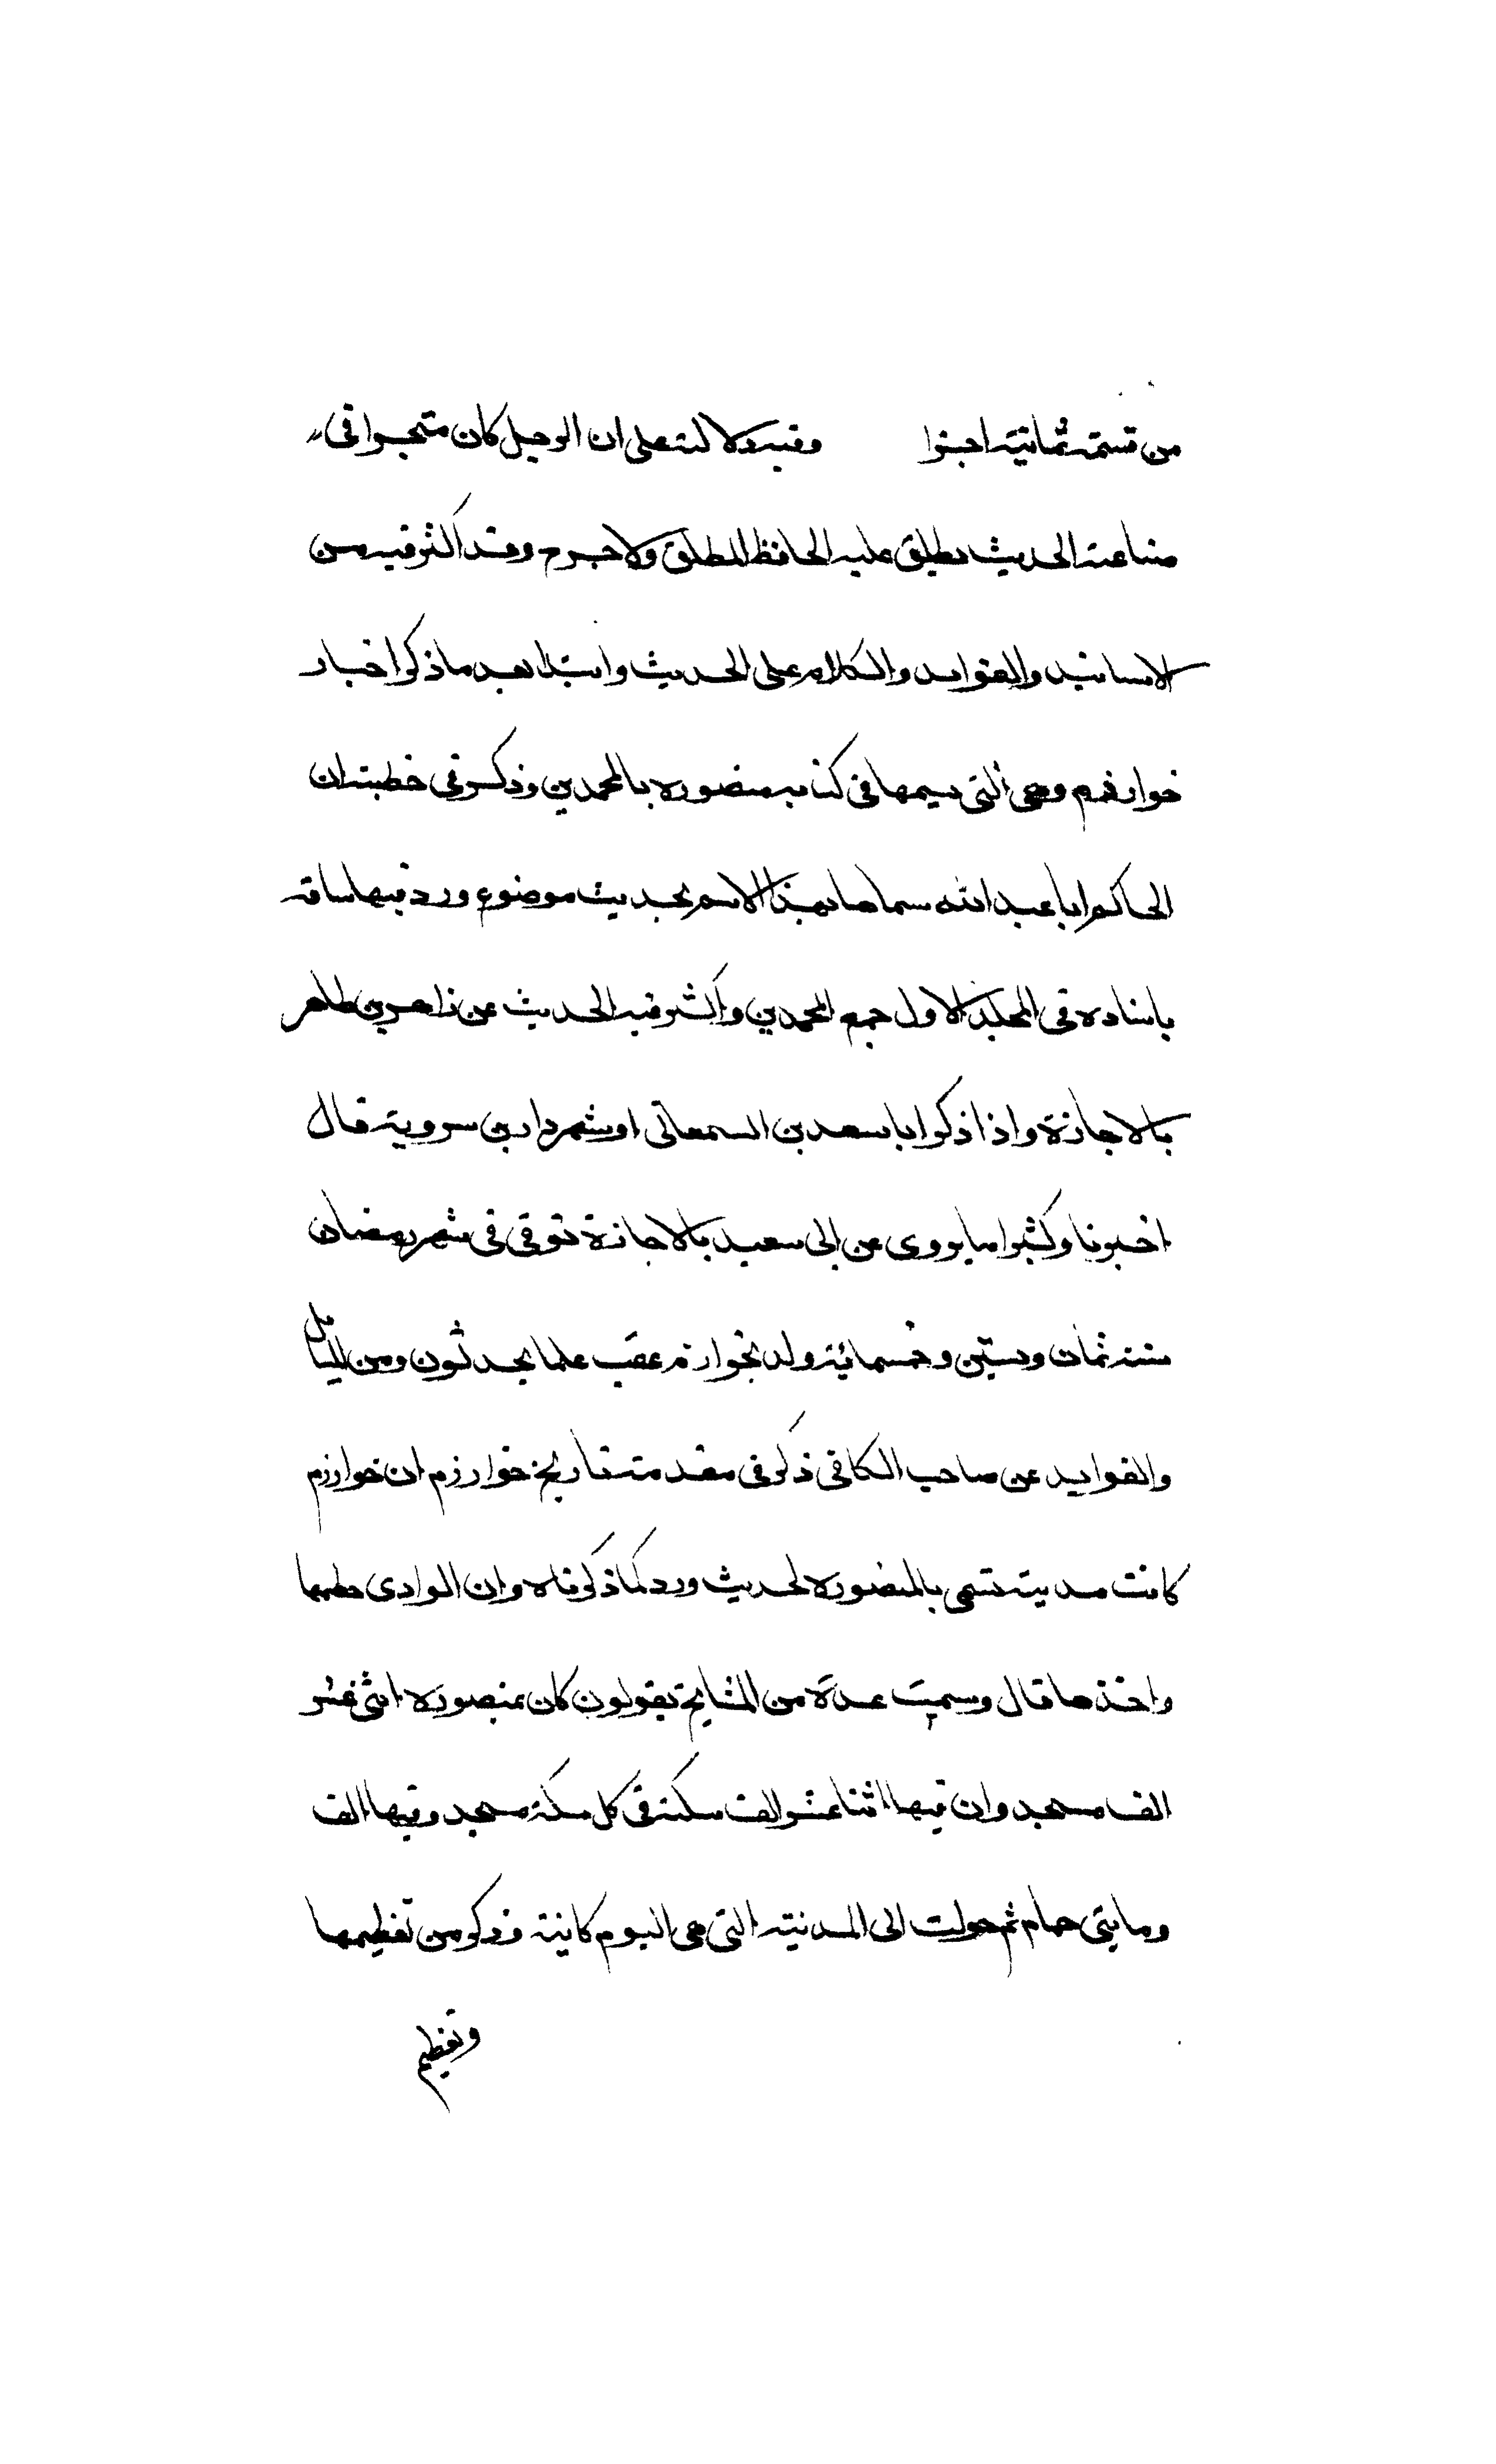 من قسمة ثمانية اجزا وفيه دلالة على ان الرجل كان متبحرا في
صناعة الحديث يطلق عليه الحافظ المطلق ولا جرم وقد اكثر فيه من
الاسانيد والفوايد والكلام على الحديث وابتدا بعد ما ذكر اخبار
خوارزم وهي التي يسيمها في كتابه منصوره بالمحمدين وذكر في خطبته ان
الحاكم ابا عبد الله سماها بهذا الاسم بحديث موضوع ورد فيها ساقه
باسناده في المجلد الاول جمع المحمدين واكثر فيه الحديث عن زاهر بن طاهر
بالاجازة واذا ذكر ابا سعد بن السمعاني او شهردار بن سروية قال
اخبرنا وكثيرا ما يروى عن ابي سعيد بالاجازة توفي في شهر رمضان
سنة ثمان وستين وخمسمائة ولد بخوارزم عقب علما يحدثون ومن المسائل
والفوايد عن صاحب الكافي ذكر في مقدمة تاريخ خوارزم ان خوارزم
كانت مدينة تسمى بالمنصوره لحديث ورد كما ذكرناه وان الوادى
واخذها قال وسمعت عدة من المشايخ يقولون كان بمنصوره اثنى عشر
الف مسجد وان فيها اثنا عشر الف سكة في كل سكة مسجد وفيها الف
ومايتي حمام ثم حولت الى المدنية التي هي اليوم كاينة وذكر من تعظيمها
وتعظيم